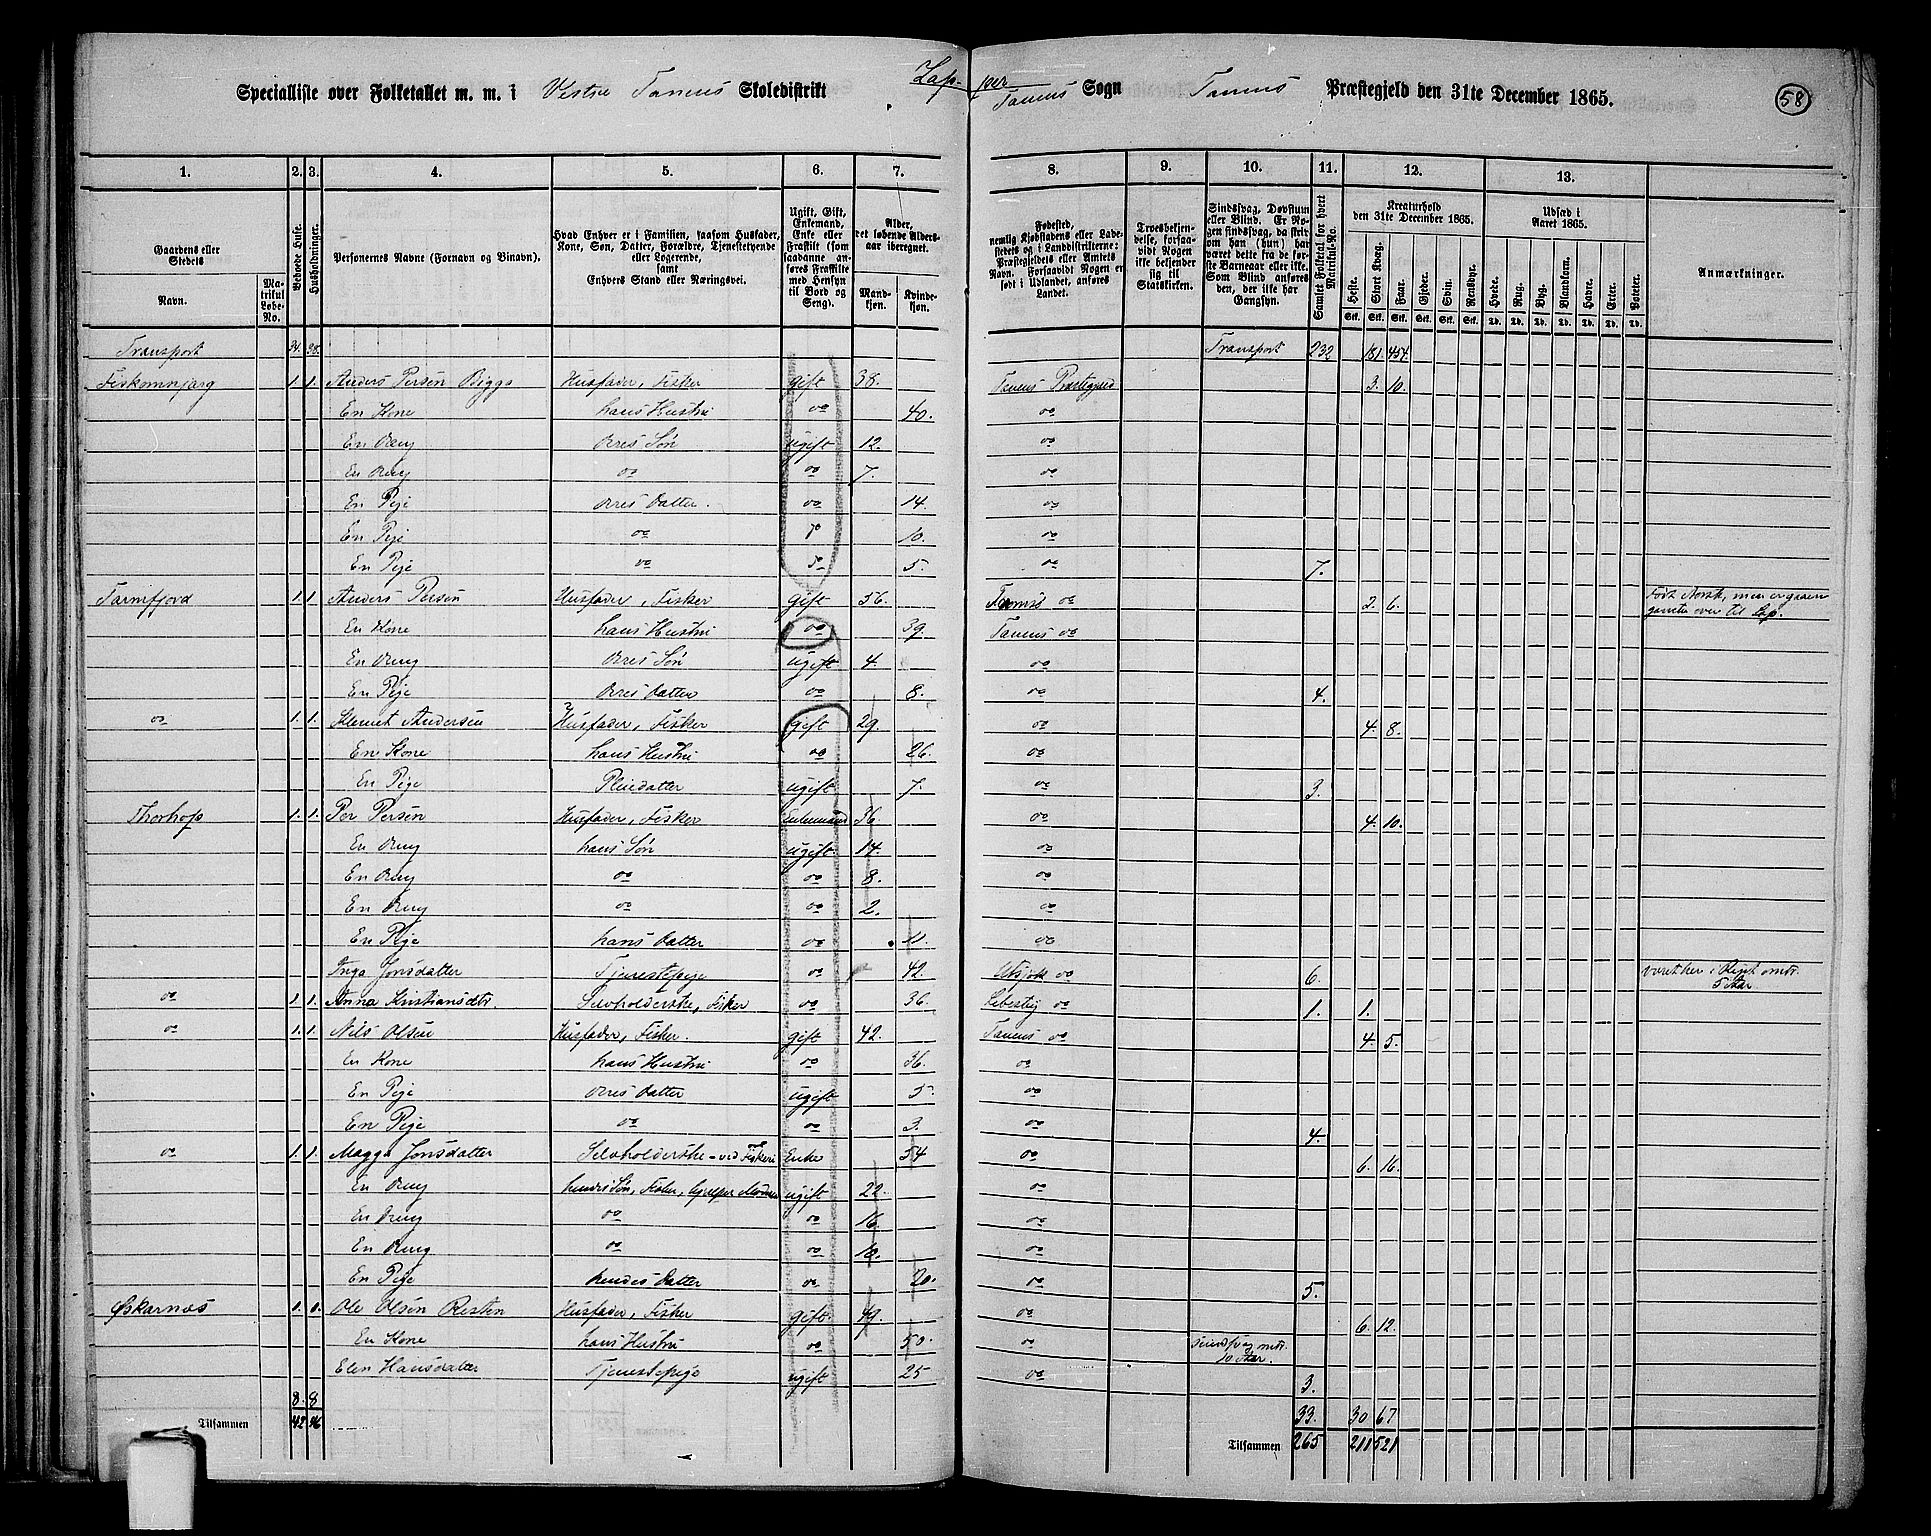 Specialliste over Folketallet m. m. i Vestre Tanens Skoledistrikt Lapper Tanens Sogn Tanens Præstegjeld den 31te December 1865. 58
1. 2. 3. 4. 5. 6. 7. 8. 9. 10. 11. 12. 13.
Gaardens eller Stedets Navn. Matrikul Løbe-No. Beboede Huse. Husholdninger. Personernes Navne (Fornavn og Binavn). Hvad Enhver er i Familien, saasom Husfader, Kone, Søn, Datter, Forældre, Tjenestetyende eller Logerende, samt Enhvers Stand eller Næringsvei. Ugift, Gift, Enkemand, Enke eller Fraskilt (som saadanne anføres Fraskilte med Hensyn til Bord og Seng). Alder, det løbende Aldersaar iberegnet. Mandkjøn. Kvindekjøn.
Fødested, nemlig Kjøbstadens eller Ladestedets og i Landdistrikterne: Præstegjeldets eller Amtets Navn. Forsaavidt Nogen er født i Udlandet, anføres Landet. Troesbekjendelse, forsaavidt Nogen ikke bekjender sig til Statskirken. Sindssvag, Døvstum eller Blind. Er Nogen sindssvag, da skriv om han (hun) har været dette fra de første Barneaar eller ikke. Som Blind anføres den, der ikke har Gangsyn. Samlet Folketal for hvert Matrikul-No. Kreaturhold den 31te December 1865. Heste. Stort Kvæg. Faar. Gjeder. Svin. Rensdyr. Udsæd i Aaret 1865. Hvede. Rug. Byg. Blandkorn. Havre. Erter. Poteter. Anmærkninger.
Stk. Stk. Stk. Stk. Stk. Stk. Td. Td. Td. Td. Td. Td. Td.
Transport 34. 38. Transport 232 181 454
Fiskomnjarg 1. 1. Anders Persen Bigga Husfader, Fisker gift 38. Tanens Præstegjeld 3. 10.
En Kone hans Hustru do 40. do
En Dreng deres Søn ugift 12. do
En Dreng do do 7. do
En Pige deres Datter. do 14. do
En Pige do do 10. do
En Pige do do 5. do 7.
Tarmfjord 1. 1. Anders Persen Husfader, Fisker Gift 56. Tromsø do 2. 6. Født Norsk, men er gaaen ganske over til Lap.
En Kone hans Hustru do 39. Tanens do
En Dreng deres Søn ugift 4. do
En Pige deres Datter do 8. do 4.
do 1. 1. Klemet Andersen Husfader, Fisker gift 29. do 4. 8.
En Kone hans Hustru do 26. do
En Pige Pleiedatter ugift 7. do 3.
Thorhop 1. 1. Per Persen Husfader, Fisker Enkemand 36. do 4. 10.
En Dreng hans Søn ugift. 14. do
En Dreng do do 8. do
En Dreng do do 2. do
En Pige hans Datter do 11. do
Inga Jonsdatter Tjenestepige do 42. Utsjok do 6. været her i Riget omtr. 5 Aar
do 1. 1. Anna Kristiansdtr. Selvholderske, Fisker do 36. Lebesby do 1. 1.
do 1. 1. Nils Olsen Husfader, Fisker. gift 42. Tanens do 4. 5.
En Kone hans Hustru do 36. do
En Pige deres Datter ugift 5. do
En Pige do do 3. do 4.
do 1. 1. Magga Jonsdatter Selvholderske - ved Fiskeri Enke 54 do 6. 16.
En Dreng hendes Søn, Fisker, hjælper Moderen ugift 22. do
En Dreng do do 16. do
En Dreng do do 10. do
En Pige hendes Datter do 20. do 5.
Øskarnæs 1. 1. Ole Olsen Resten Husfader, Fisker gift. 49. do 6. 12.
En Kone hans Hustru do 50. do Sindssvag omtr. 10 Aar.
Elen Hansdatter Tjenestepige ugift 25 do 3.
8. 8 33. 30 67
Tilsammen 42 46 Tilsammen 265 211 521